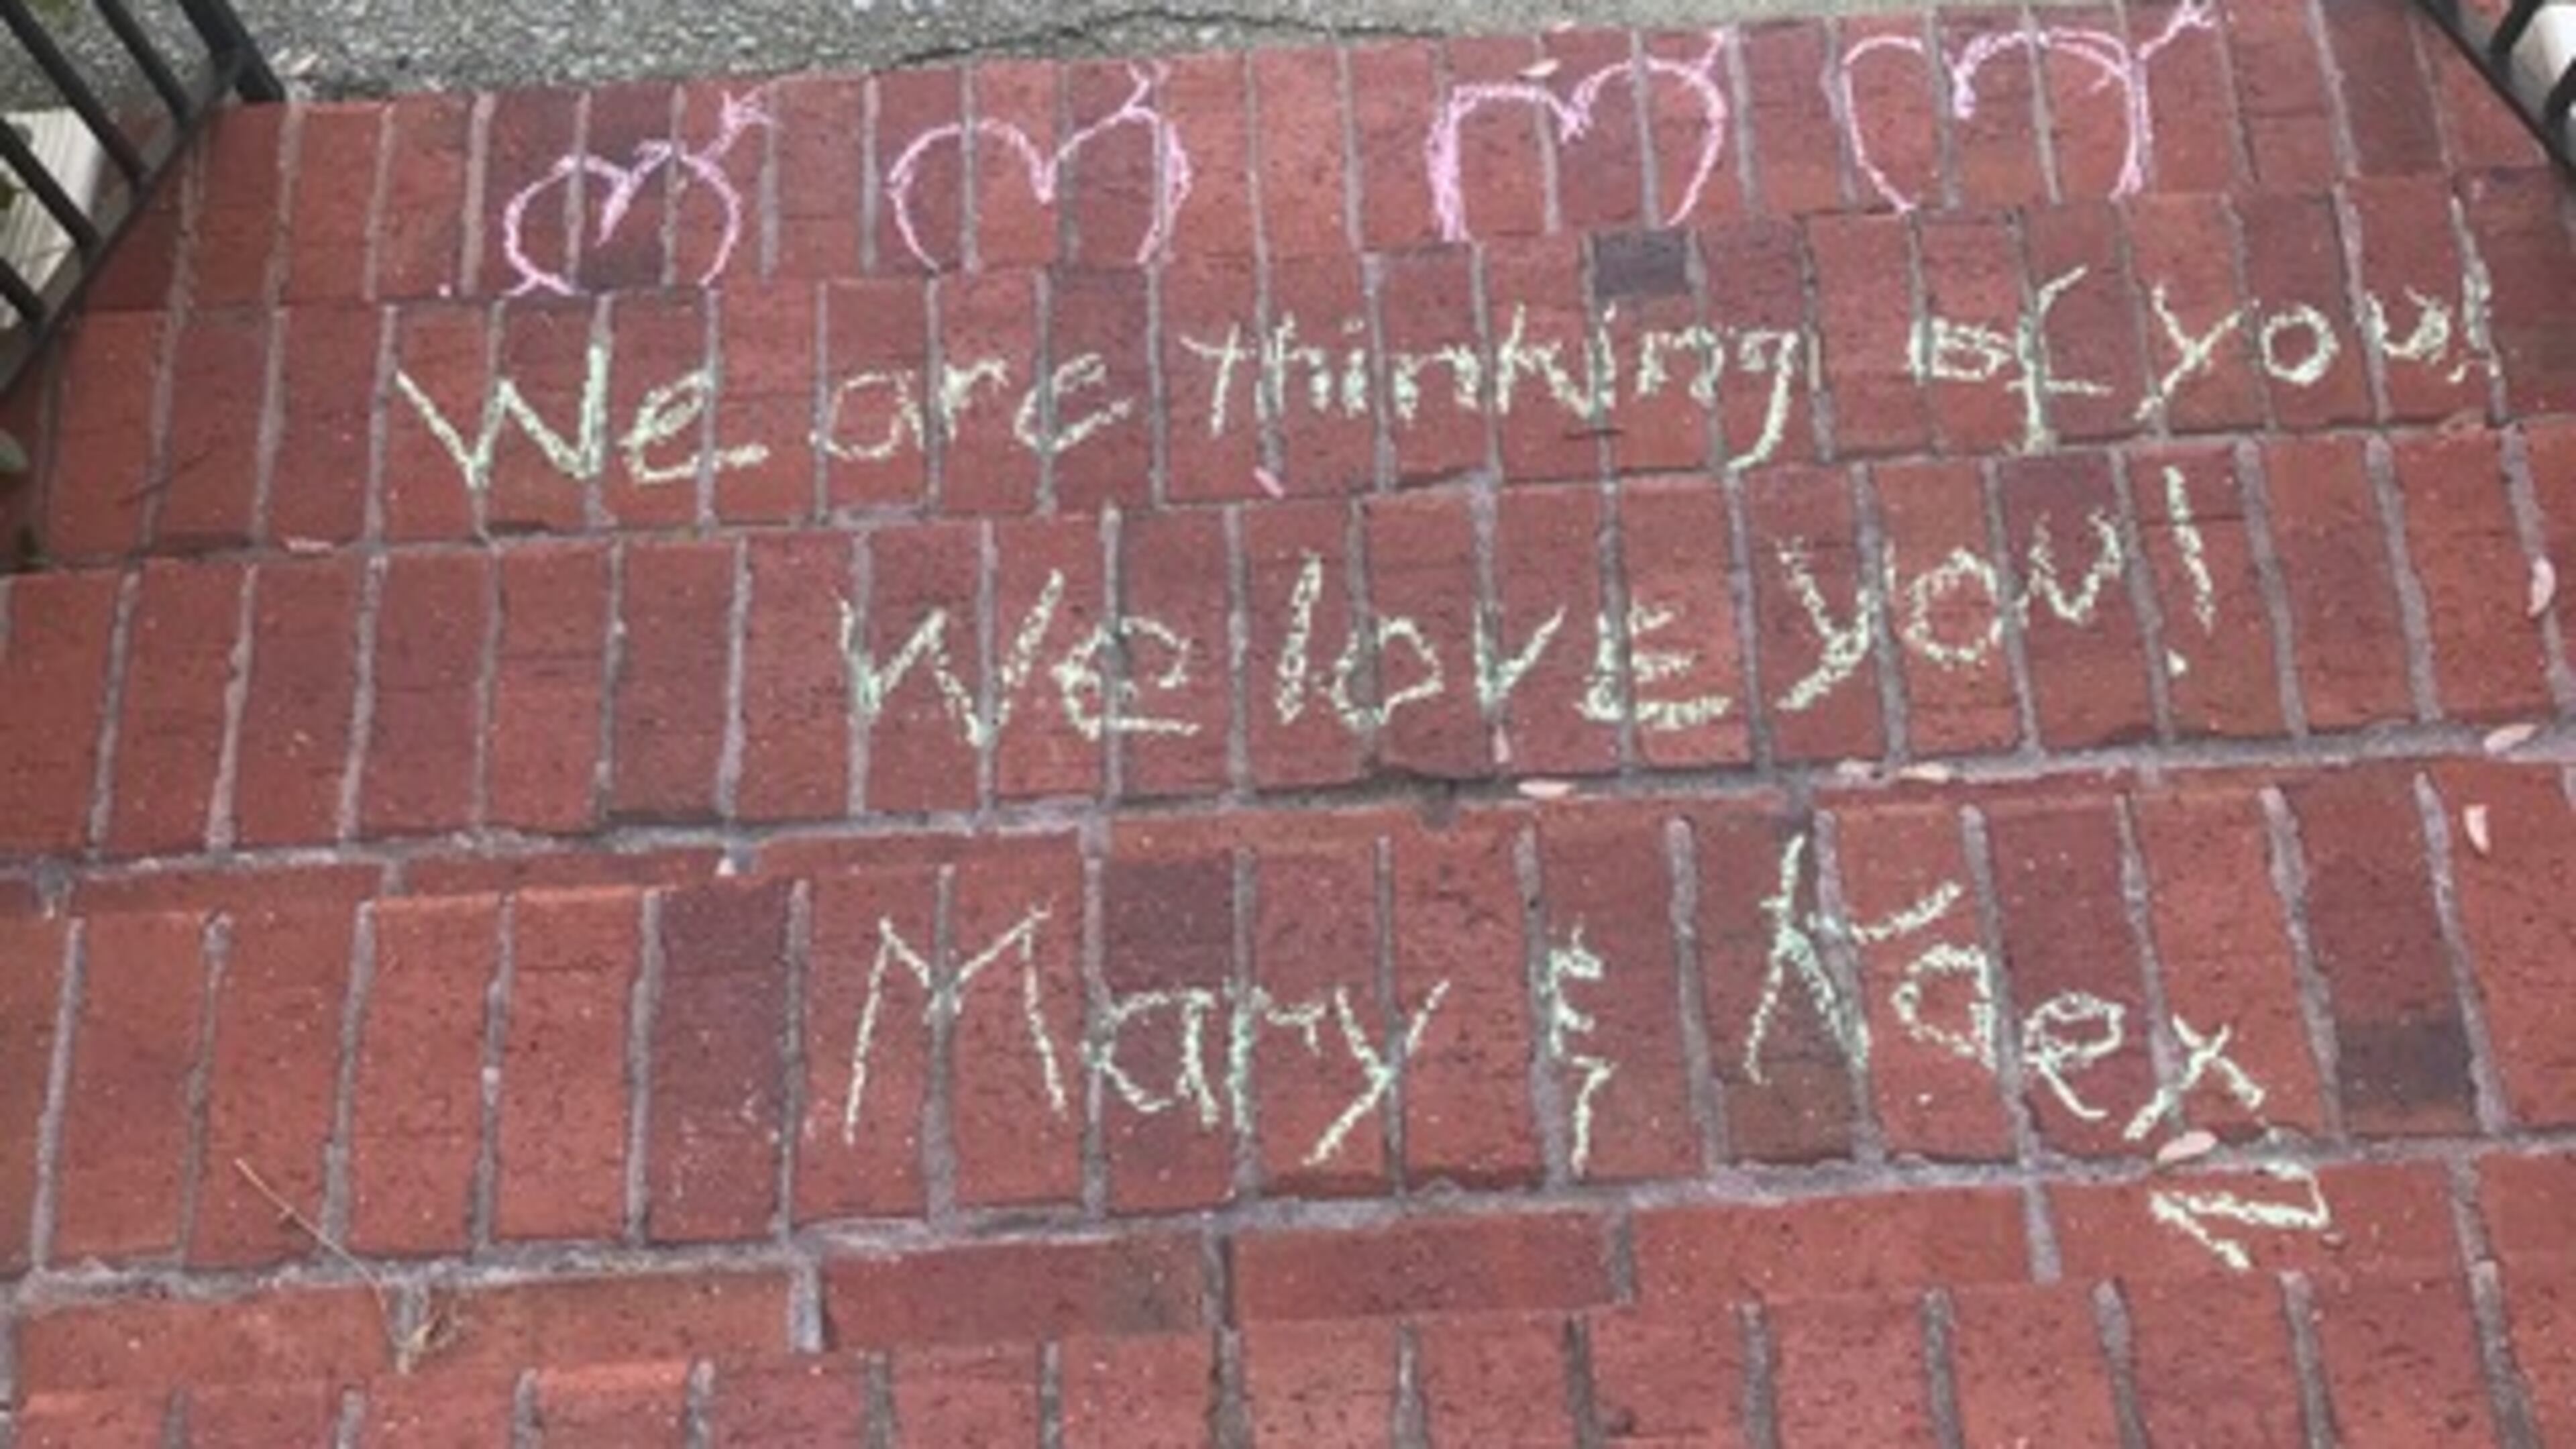 We are thinking of you!
We lovE you!
Mary &